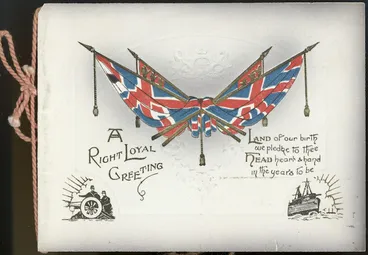 A
RIGHT LOYAL
GREETING
LAND of our birth
we pledge to thee
HEAD heart & hand
in the years to be